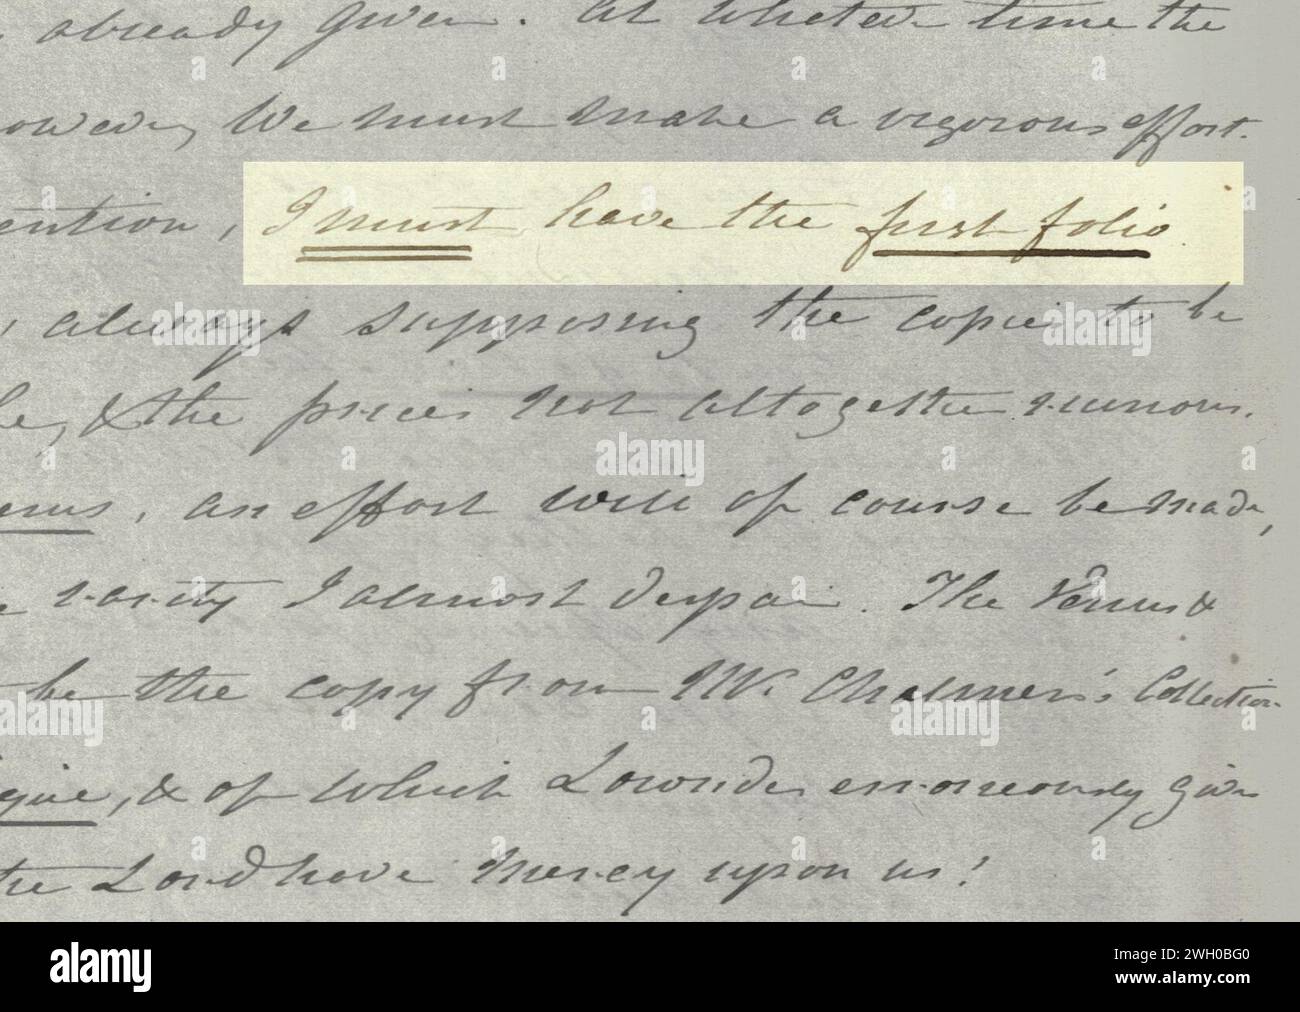 already given. At whatever time the
owever, We must make a vigorous effort.
ention, I must have the first folio.
, always supposing the copies to be
le, & the prices not altogether ruinous.
enus, an effort will of course be made,
rarity I almost despair. The Venus &
be the copy from Mr. Chalmers's Collection
gie, & of which Lowndes erroneously gives
the Lord have mercy upon us!
alamy
Image ID: 2WH0BG0
www.alamy.com